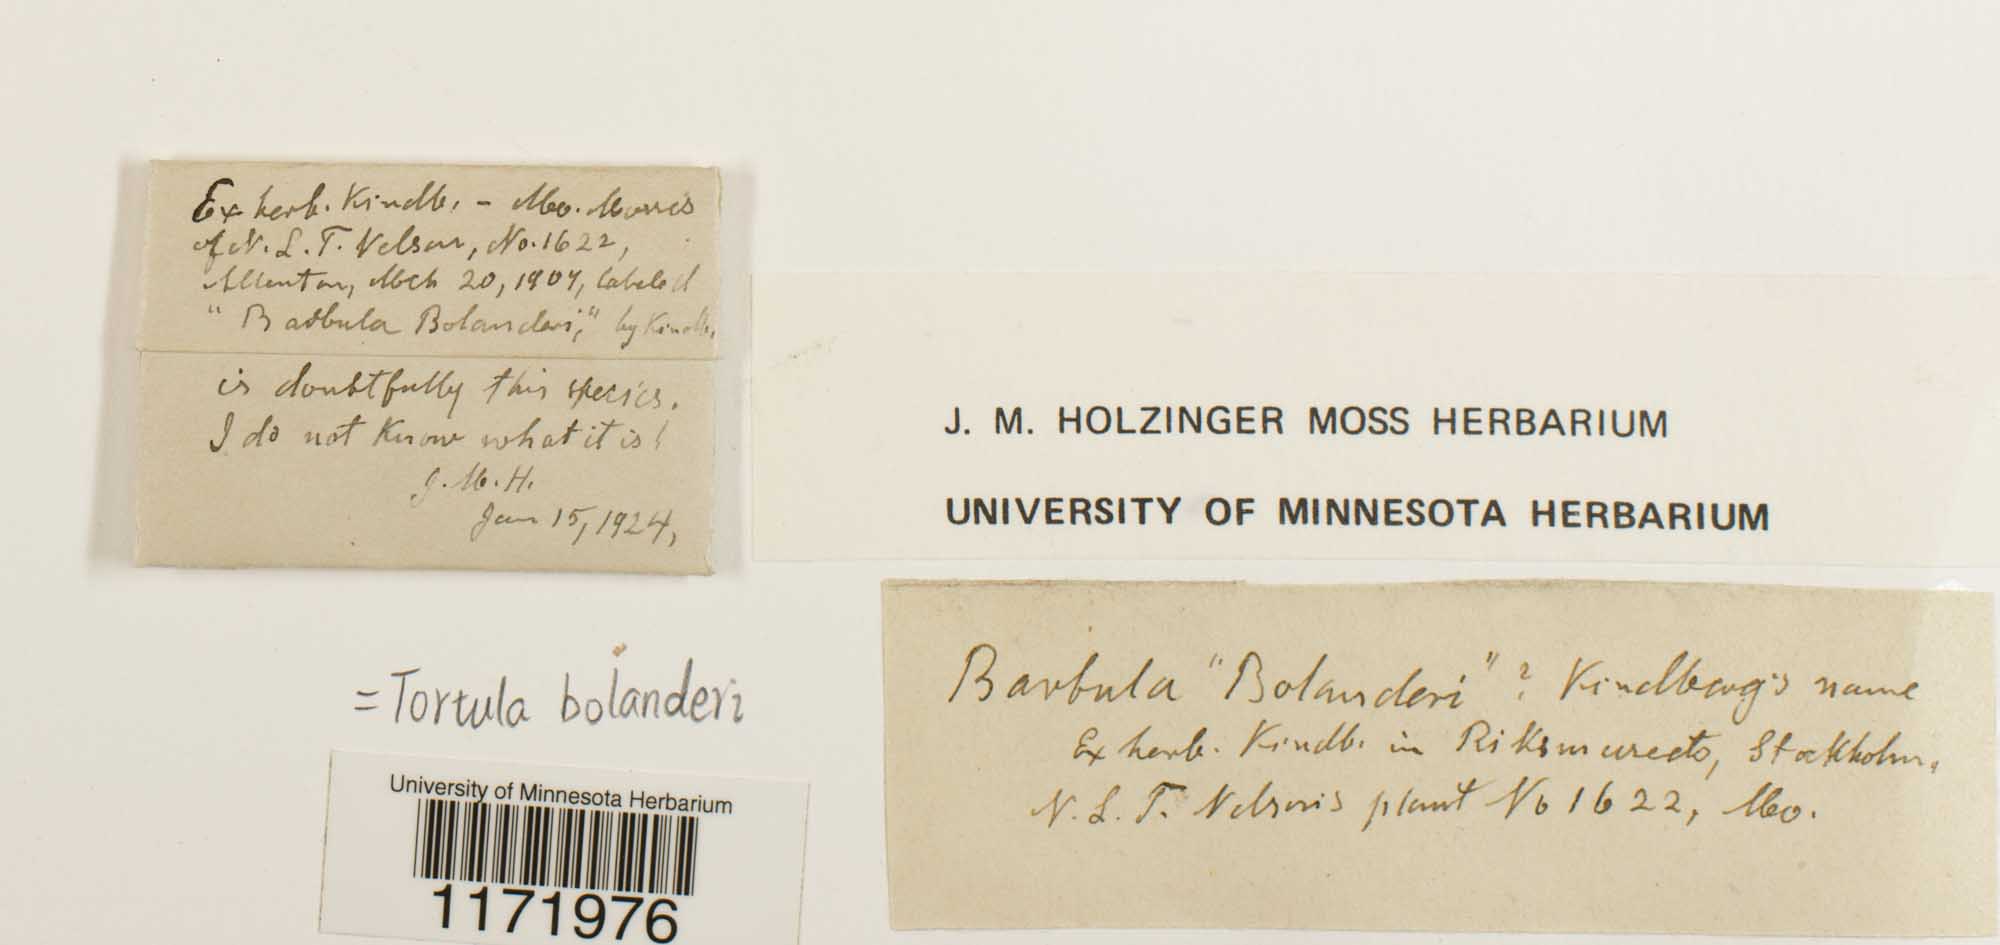 Ex herb. Kindb. - Mo. Mosses
of N. L. T. Nelson, No. 1622,
Allenton, Mch 20, 1907, labeled
"Barbula Bolanderi," by Kindb.
is doubtfully this species.
I do not know what it is!
J. M. H.
Jan 15, 1924,
= Tortula bolanderi
University of Minnesota Herbarium
1171976
J. M. HOLZINGER MOSS HERBARIUM
UNIVERSITY OF MINNESOTA HERBARIUM
Barbula "Bolanderi"? Kindberg's name
Ex herb. Kindb. in Stockholm,
N. L. T. Nelson's plant No 1622, Mo.